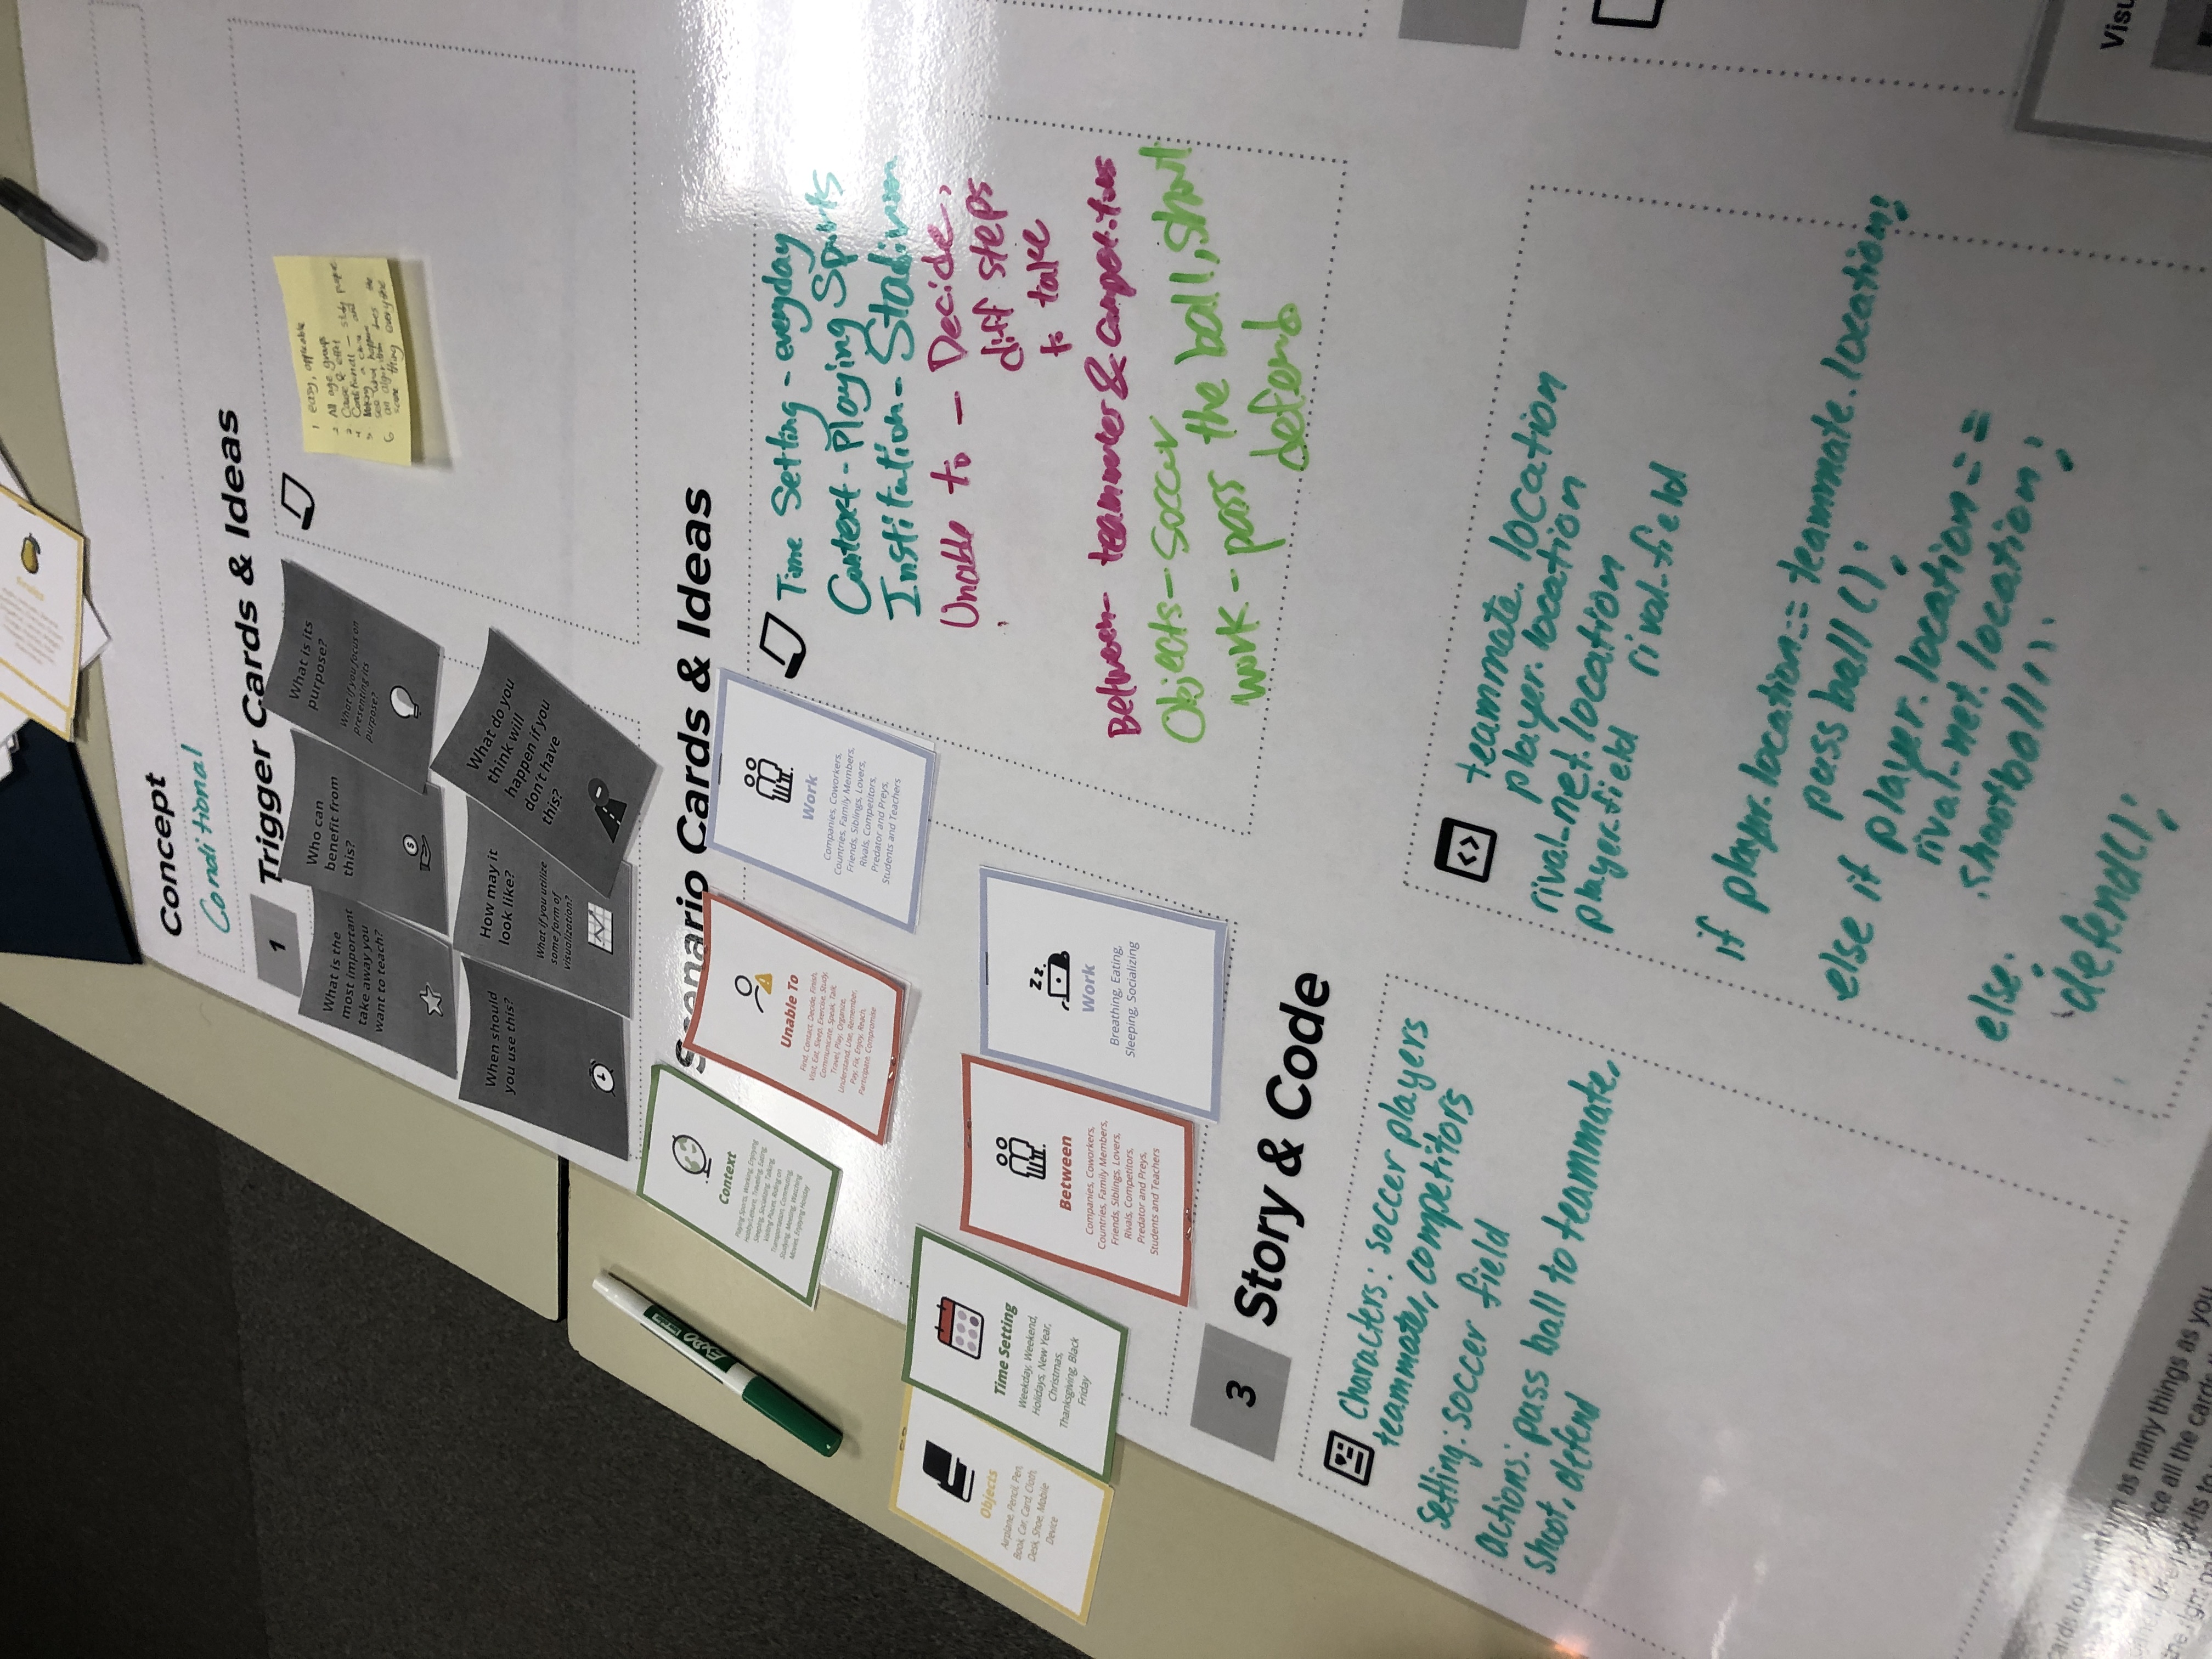 Concept
Conditional
1
Trigger Cards & Ideas
What is the
most important
take away you
want to teach?
Who can
benefit from
this?
$
What is its
purpose?
What if you focus on
presenting its
purpose?
When should
you use this?
How may it
look like?
What if you utilize
some form of
visualization?
What do you
think will
happen if you
don't have
this?
1 easy, applicable
2 All age groups
3 Cause & effect
4 Conditional — study people
5 Making a choice and
see what happens
6 an algorithm does the
same thing everytime
EXPO
Scenario Cards & Ideas
Context
Playing Sports, Working, Enjoying
Hobby/Leisure, Traveling, Eating,
Sleeping, Socializing, Talking,
Visiting Places, Riding on
Transportation, Commuting,
Studying, Meeting, Watching
Movies, Enjoying Holiday
Unable To
Find, Contact, Decide, Finish,
Visit, Eat, Sleep, Exercise, Study,
Communicate, Speak, Talk,
Travel, Play, Organize,
Understand, Use, Remember,
Pay, Fix, Enjoy, Reach,
Participate, Compromise
Work
Companies, Coworkers,
Countries, Family Members,
Friends, Siblings, Lovers,
Rivals, Competitors,
Predator and Preys,
Students and Teachers
Objects
Airplane, Pencil, Pen,
Book, Car, Card, Cloth,
Desk, Shoe, Mobile
Device
Time Setting
Weekday, Weekend,
Holidays, New Year,
Christmas,
Thanksgiving, Black
Friday
Between
Companies, Coworkers,
Countries, Family Members,
Friends, Siblings, Lovers,
Rivals, Competitors,
Predator and Preys,
Students and Teachers
Zz.
Work
Breathing, Eating,
Sleeping, Socializing
Time Setting - everyday
Context - Playing Sports
Institution - Stadium
Unable to — Decide,
diff steps
to take
Between - teammates & competitors
Objects - Soccer
work - pass the ball, shoot
defend
3
Story & Code
Characters: soccer players
teammates, competitors
Setting: soccer field
actions: pass ball to teammate,
shoot, defend
<>
teammate. location
player. location
rival-net. location
player-field rival-field
if player. location == teammate. location;
pass ball ();
else if player. location ==
rival-net. location;
shootball();
else;
defend();
cards to brainstorm as many things as you
all the cards
the right
Visu